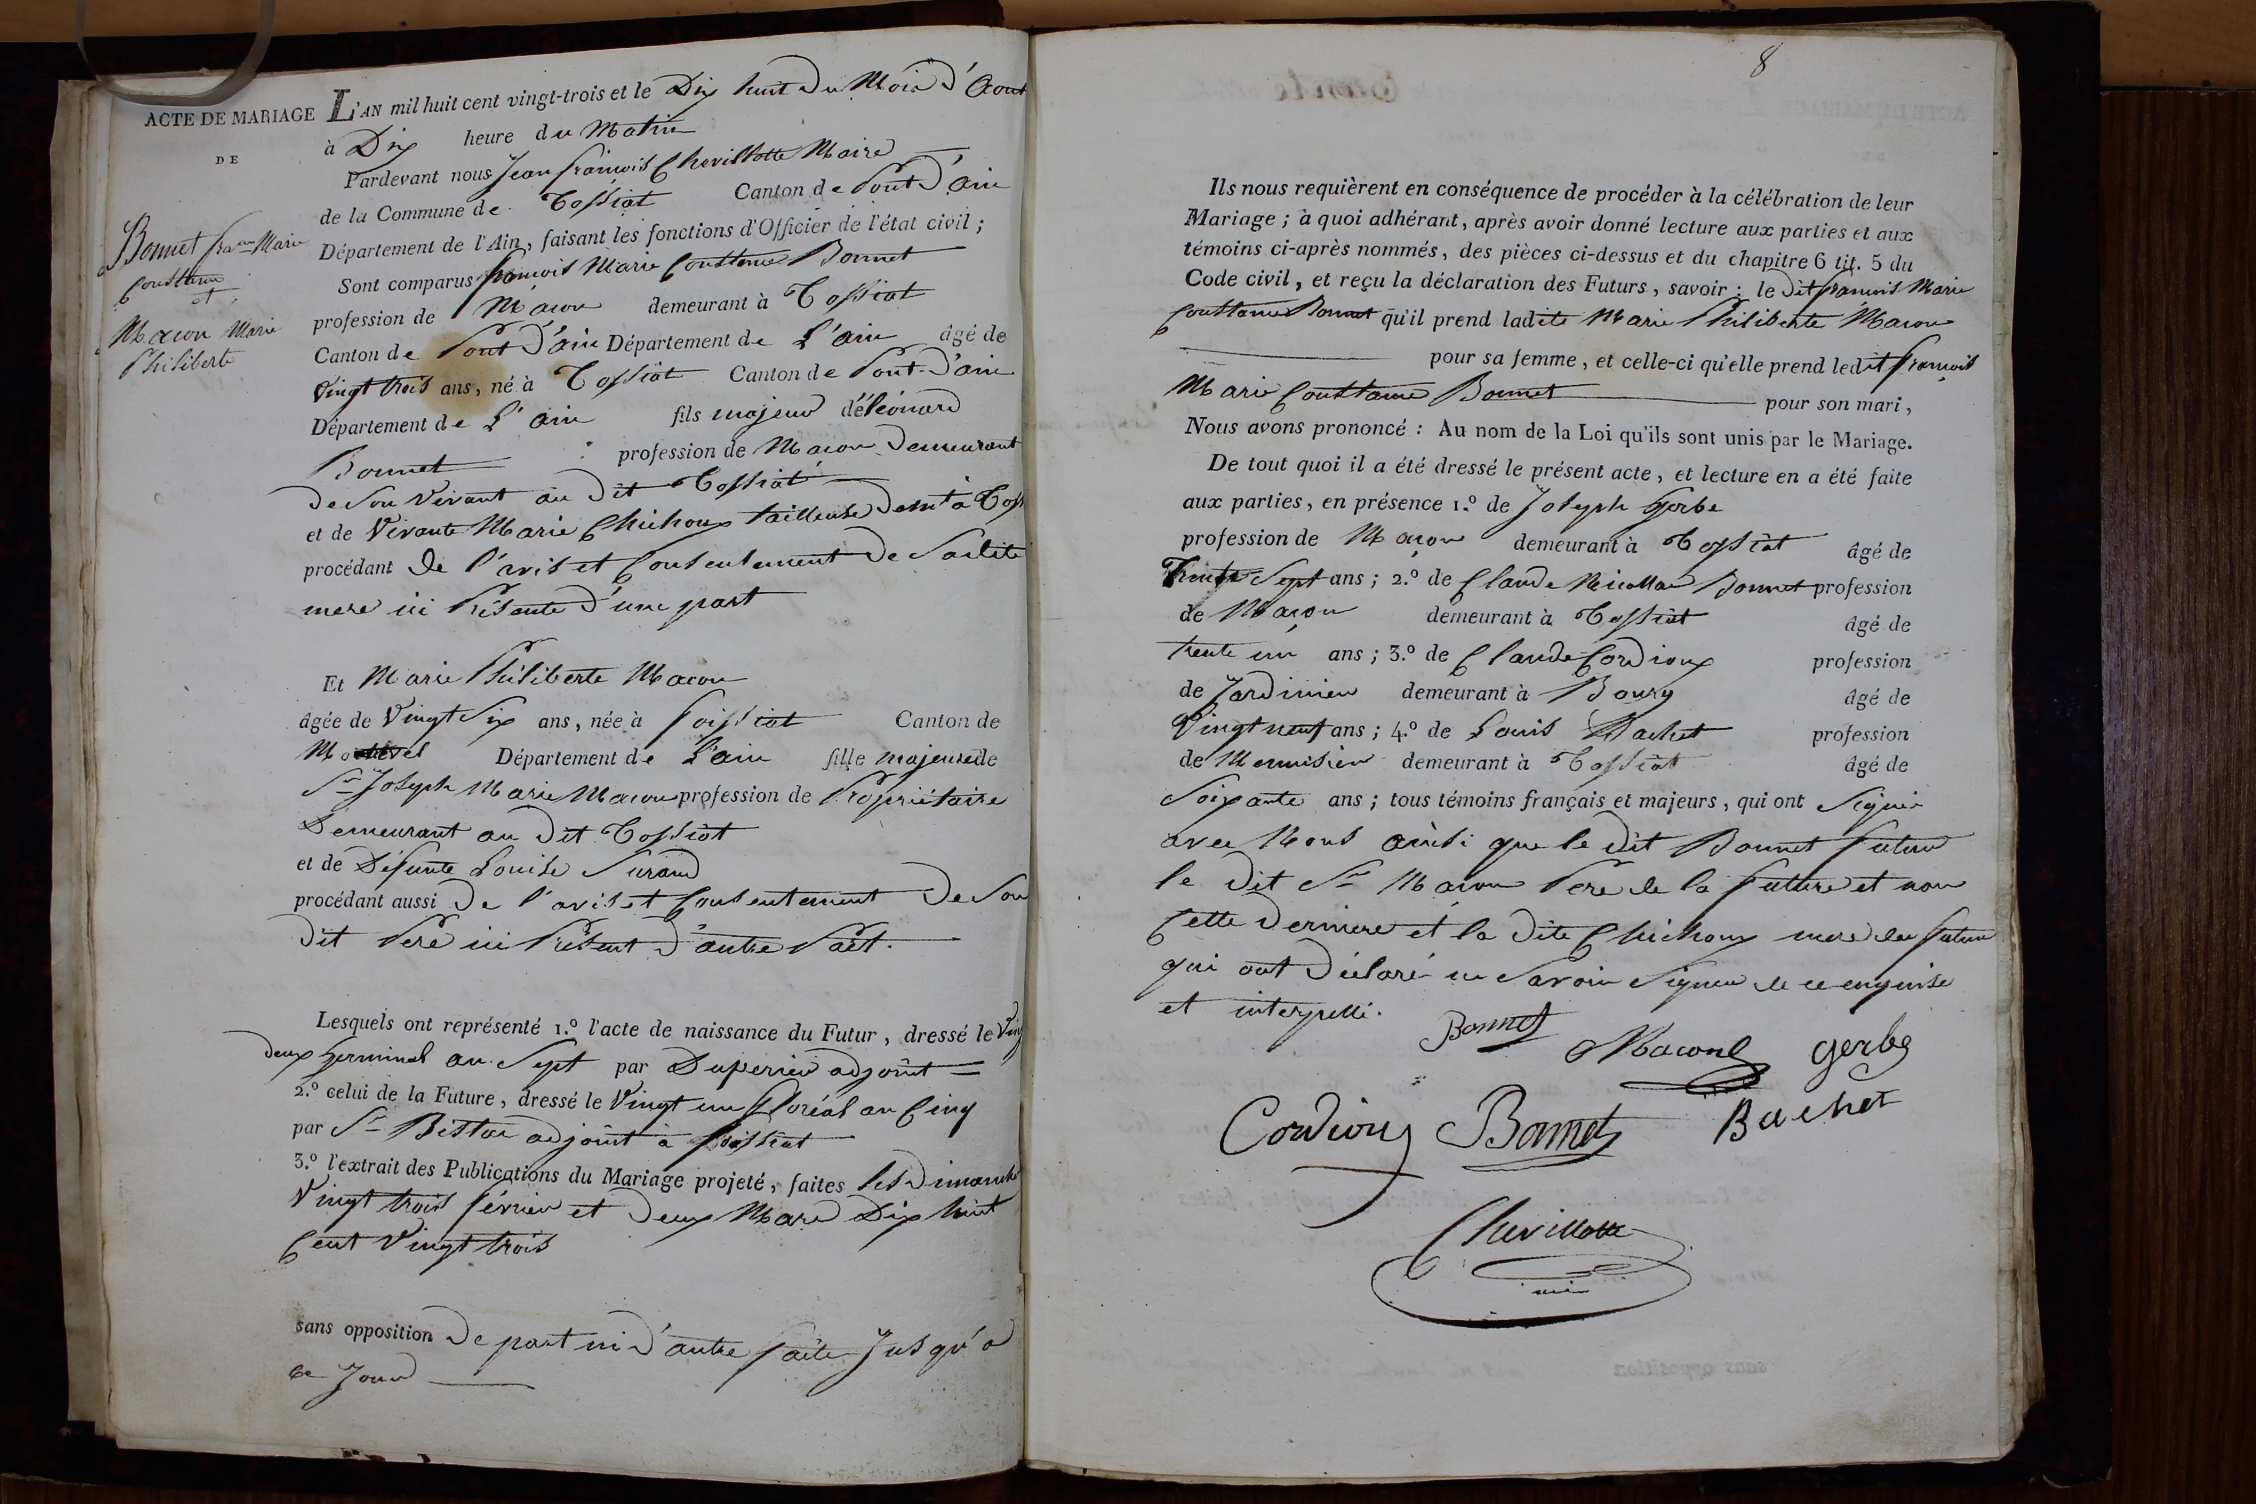 ACTE DE MARIAGE
DE
Bonnet fran.ois Marie
Constance
et
Macon Marie
Philiberte
L'AN mil huit cent vingt-trois et le Dix huit du Mois d'Aout
à Dix heure du Matin
Pardevant nous Jean françois Chevillotte Maire
de la Commune de Tossiat Canton de Pont d'ain
Département de l'Ain, faisant les fonctions d'Officier de l'état civil ;
Sont comparus françois Marie Constance Bonnet
profession de Maçon demeurant à Tossiat
Canton de Pont d'ain Département de L'ain âgé de
Vingt trois ans, né à Tossiat Canton de Pont-d'ain
Département de L'ain fils majeur de Léonard
Bonnet profession de Macon demeurant
de Son Vivant au dit Tossiat
et de Vivante Marie Chichoux tailleuse demt à Toss
procédant de l'avis et Consentement de Sadite
mere ici Présente d'une part
Et Marie Philiberte Macon
âgée de Vingt Six ans, née à foissiat Canton de
Montrevel Département de L'ain fille majeure de
Sr Joseph Marie Macon profession de Propriétaire
Demeurant au dit Tossiat
et de Défunte Louise
procédant aussi De l'avis et Consentement De Son
dit Pere ici Présent d'autre Part.
Lesquels ont représenté 1.º l'acte de naissance du Futur, dressé le Vingt
deux germinal an Sept par Duperrier adjoint
2.º celui de la Future, dressé le Vingt un floréal an Cinq
par Sr adjoint à foissiat
3.º l'extrait des Publications du Mariage projeté, faites les Dimanche
Vingt trois février et deux Mars Dix huit
Cent Vingt trois
sans opposition de part ni d'autre faite Jusqu'a
ce Jour
8
Ils nous requièrent en conséquence de procéder à la célébration de leur
Mariage ; à quoi adhérant, après avoir donné lecture aux parties et aux
témoins ci-après nommés, des pièces ci-dessus et du chapitre 6 tit. 5 du
Code civil, et reçu la déclaration des Futurs, savoir : le dit françois Marie
Constance Bonnet qu'il prend ladite Marie Philiberte Macon
pour sa femme, et celle-ci qu'elle prend ledit françois
Marie Constance Bonnet pour son mari,
Nous avons prononcé : Au nom de la Loi qu'ils sont unis par le Mariage.
De tout quoi il a été dressé le présent acte, et lecture en a été faite
aux parties, en présence 1.º de Joseph Gerbe
profession de Maçon demeurant à Tossiat âgé de
Trente Sept ans ; 2.º de Claude Nicollas Bonnet profession
de Maçon demeurant à Tossiat âgé de
trente un ans ; 3.º de Claude Cordioux profession
de Jardinier demeurant à Bourg âgé de
Vingt neuf ans ; 4.º de Louis Bachet profession
de Menuisier demeurant à Tossiat âgé de
Soixante ans ; tous témoins français et majeurs, qui ont Signé
avec Nous ainsi que le dit Bonnet futur
le dit Sr Macon Pere de la future et non
Cette derniere et la dite Chichoux mere du futur
qui ont déclaré ne Savoir Signer de ce enquise
et interpellé.
Bonnet
Macon
Gerbe
Cordioux
Bonnet
Bachet
Chevillotte